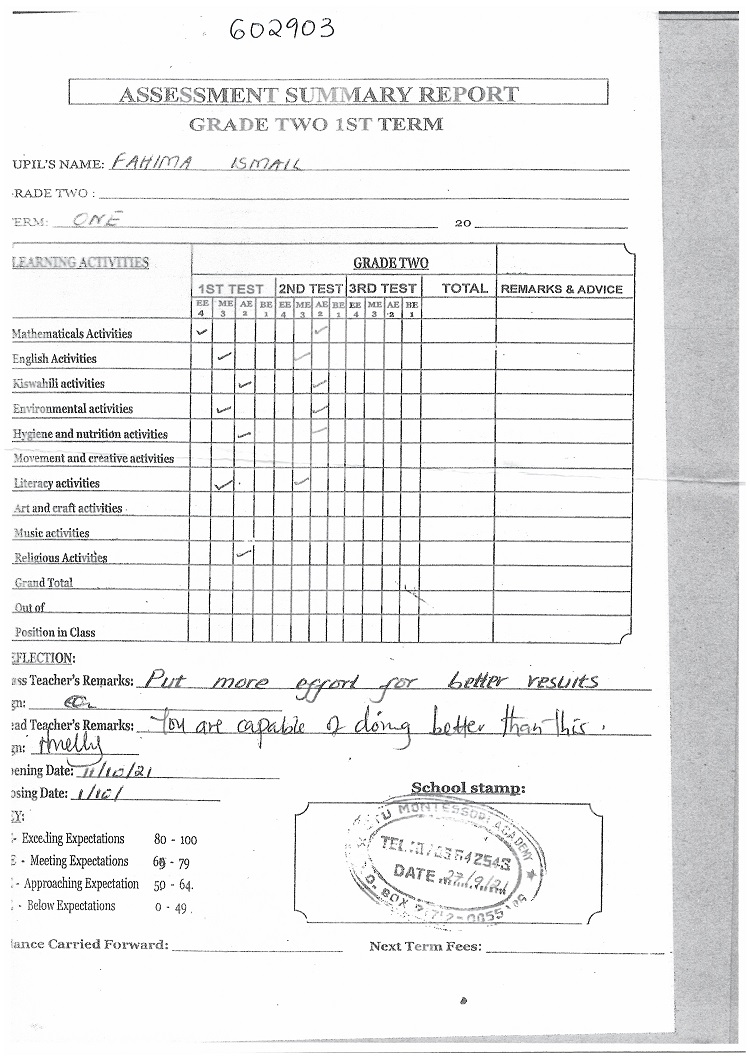 602903
ASSESSMENT SUMMARY REPORT
GRADE TWO 1ST TERM
UPIL'S NAME: FAHIMA ISMAIL
RADE TWO :
ERM: ONE 20
LEARNING ACTIVITIES GRADE TWO
1ST TEST 2ND TEST 3RD TEST TOTAL REMARKS & ADVICE
EE ME AE BE EE ME AE BE EE ME AE BE
4 3 2 1 4 3 2 1 4 3 2 1
Mathematicals Activities ✓ ✓
English Activities ✓ ✓
Kiswahili activities ✓ ✓
Environmental activities ✓ ✓
Hygiene and nutrition activities ✓ ✓
Movement and creative activities
Literacy activities ✓ ✓
Art and craft activities
Music activities
Religious Activities ✓
Grand Total
Out of
Position in Class
EFLECTION:
ass Teacher's Remarks: Put more effort for better results
gn:
ead Teacher's Remarks: You are capable of doing better than this.
gn:
ening Date: 11/10/21
osing Date: 1/10/
School stamp:
EY:
- Exceding Expectations 80 - 100
E - Meeting Expectations 65 - 79
- Approaching Expectation 50 - 64.
- Below Expectations 0 - 49
MONTESSORI ACADEMY
DATE 27/9/21
lance Carried Forward: Next Term Fees: